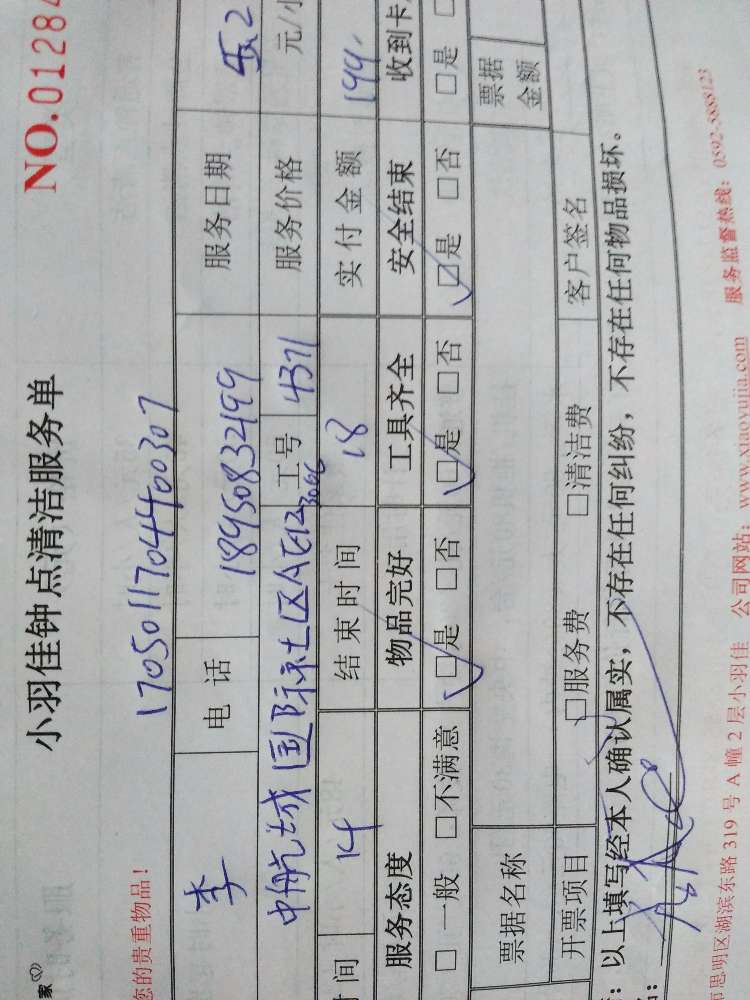 家
小羽佳钟点清洁服务单
NO.01284
您的贵重物品！ 1705011704400307
李 电话 18950832499 服务日期 5.2
中航城国际社区A区12 3066 工号 4371 服务价格 元/小
时间 14 结束时间 18 实付金额 144.
服务态度 物品完好 工具齐全 安全结束 收到卡
□ 一般 □不满意 □是 □否 □是 □否 □是 □否 □是 □
票据名称 票据金额
开票项目 □服务费 □清洁费 客户签名
：以上填写经本人确认属实，不存在任何纠纷，不存在任何物品损坏。
市思明区湖滨东路 319 号 A 幢 2 层小羽佳 公司网站：www.xiaoyujia.com 服务监督热线：0592-5888123